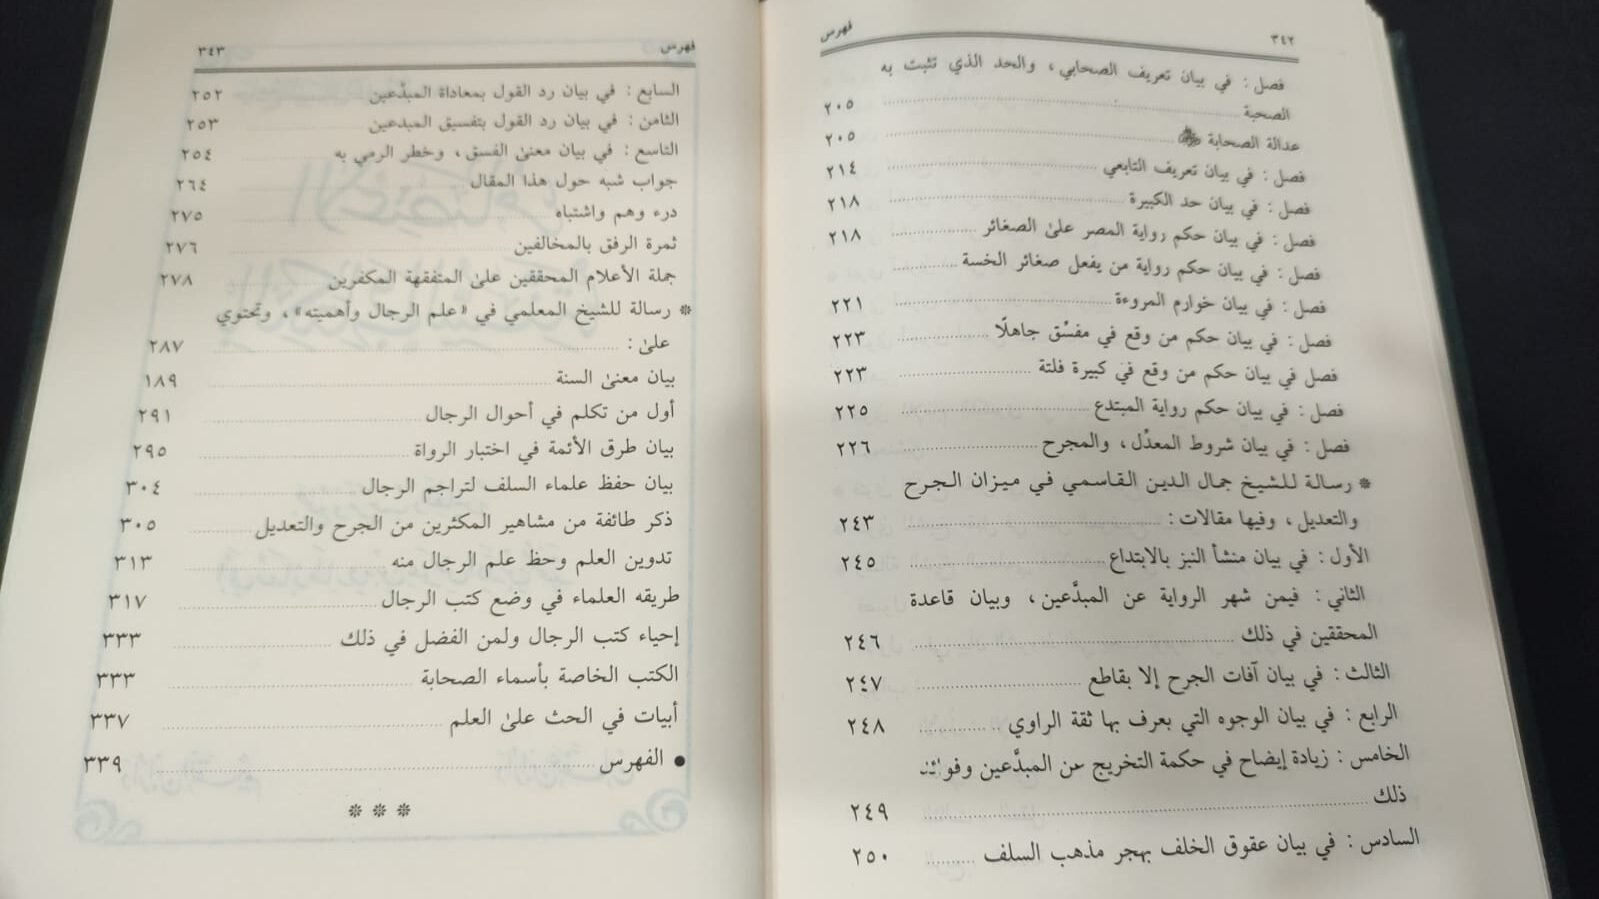 ٣٤٢ فهرس
فصل : في بيان تعريف الصحابي ، والحد الذي تثبت به
الصحبة ٢٠٥
عدالة الصحابة ﷺ ٢٠٥
فصل : في بيان تعريف التابعي ٢١٤
فصل : في بيان حد الكبيرة ٢١٨
فصل : في بيان حكم رواية المصر على الصغائر ٢١٨
فصل : في بيان حكم رواية من يفعل صغائر الخسة
فصل : في بيان خوارم المروءة ٢٢١
فصل : في بيان حكم من وقع في مفسِّق جاهلًا ٢٢٣
فصل في بيان حكم من وقع في كبيرة فلتة ٢٢٣
فصل : في بيان حكم رواية المبتدع ٢٢٥
فصل : في بيان شروط المعدِّل ، والمجرح ٢٢٦
* رسالة للشيخ جمال الدين القاسمي في ميزان الجرح
والتعديل ، وفيها مقالات : ٢٤٣
الأول : في بيان منشأ النبز بالابتداع ٢٤٥
الثاني : فيمن شهر الرواية عن المبدَّعين ، وبيان قاعدة
المحققين في ذلك ٢٤٦
الثالث : في بيان آفات الجرح إلا بقاطع ٢٤٧
الرابع : في بيان الوجوه التي يعرف بها ثقة الراوي ٢٤٨
الخامس : زيادة إيضاح في حكمة التخريج عن المبدَّعين وفوائد
ذلك ٢٤٩
السادس : في بيان عقوق الخلف بهجر مذهب السلف ٢٥٠
فهرس ٣٤٣
السابع : في بيان رد القول بمعاداة المبدَّعين ٢٥٢
الثامن : في بيان رد القول بتفسيق المبدعين ٢٥٣
التاسع : في بيان معنى الفسق ، وخطر الرمي به ٢٥٤
جواب شبه حول هذا المقال ٢٦٤
درء وهم واشتباه ٢٧٥
ثمرة الرفق بالمخالفين ٢٧٦
جملة الأعلام المحققين على المتفقهة المكفرين ٢٧٨
* رسالة للشيخ المعلمي في «علم الرجال وأهميته» ، وتحتوي
على : ٢٨٧
بيان معنى السنة ١٨٩
أول من تكلم في أحوال الرجال ٢٩١
بيان طرق الأئمة في اختبار الرواة ٢٩٥
بيان حفظ علماء السلف لتراجم الرجال ٣٠٤
ذكر طائفة من مشاهير المكثرين من الجرح والتعديل ٣٠٥
تدوين العلم وحظ علم الرجال منه ٣١٣
طريقه العلماء في وضع كتب الرجال ٣١٧
إحياء كتب الرجال ولمن الفضل في ذلك ٣٣٣
الكتب الخاصة بأسماء الصحابة ٣٣٣
أبيات في الحث على العلم ٣٣٧
● الفهرس ٣٣٩
* * *